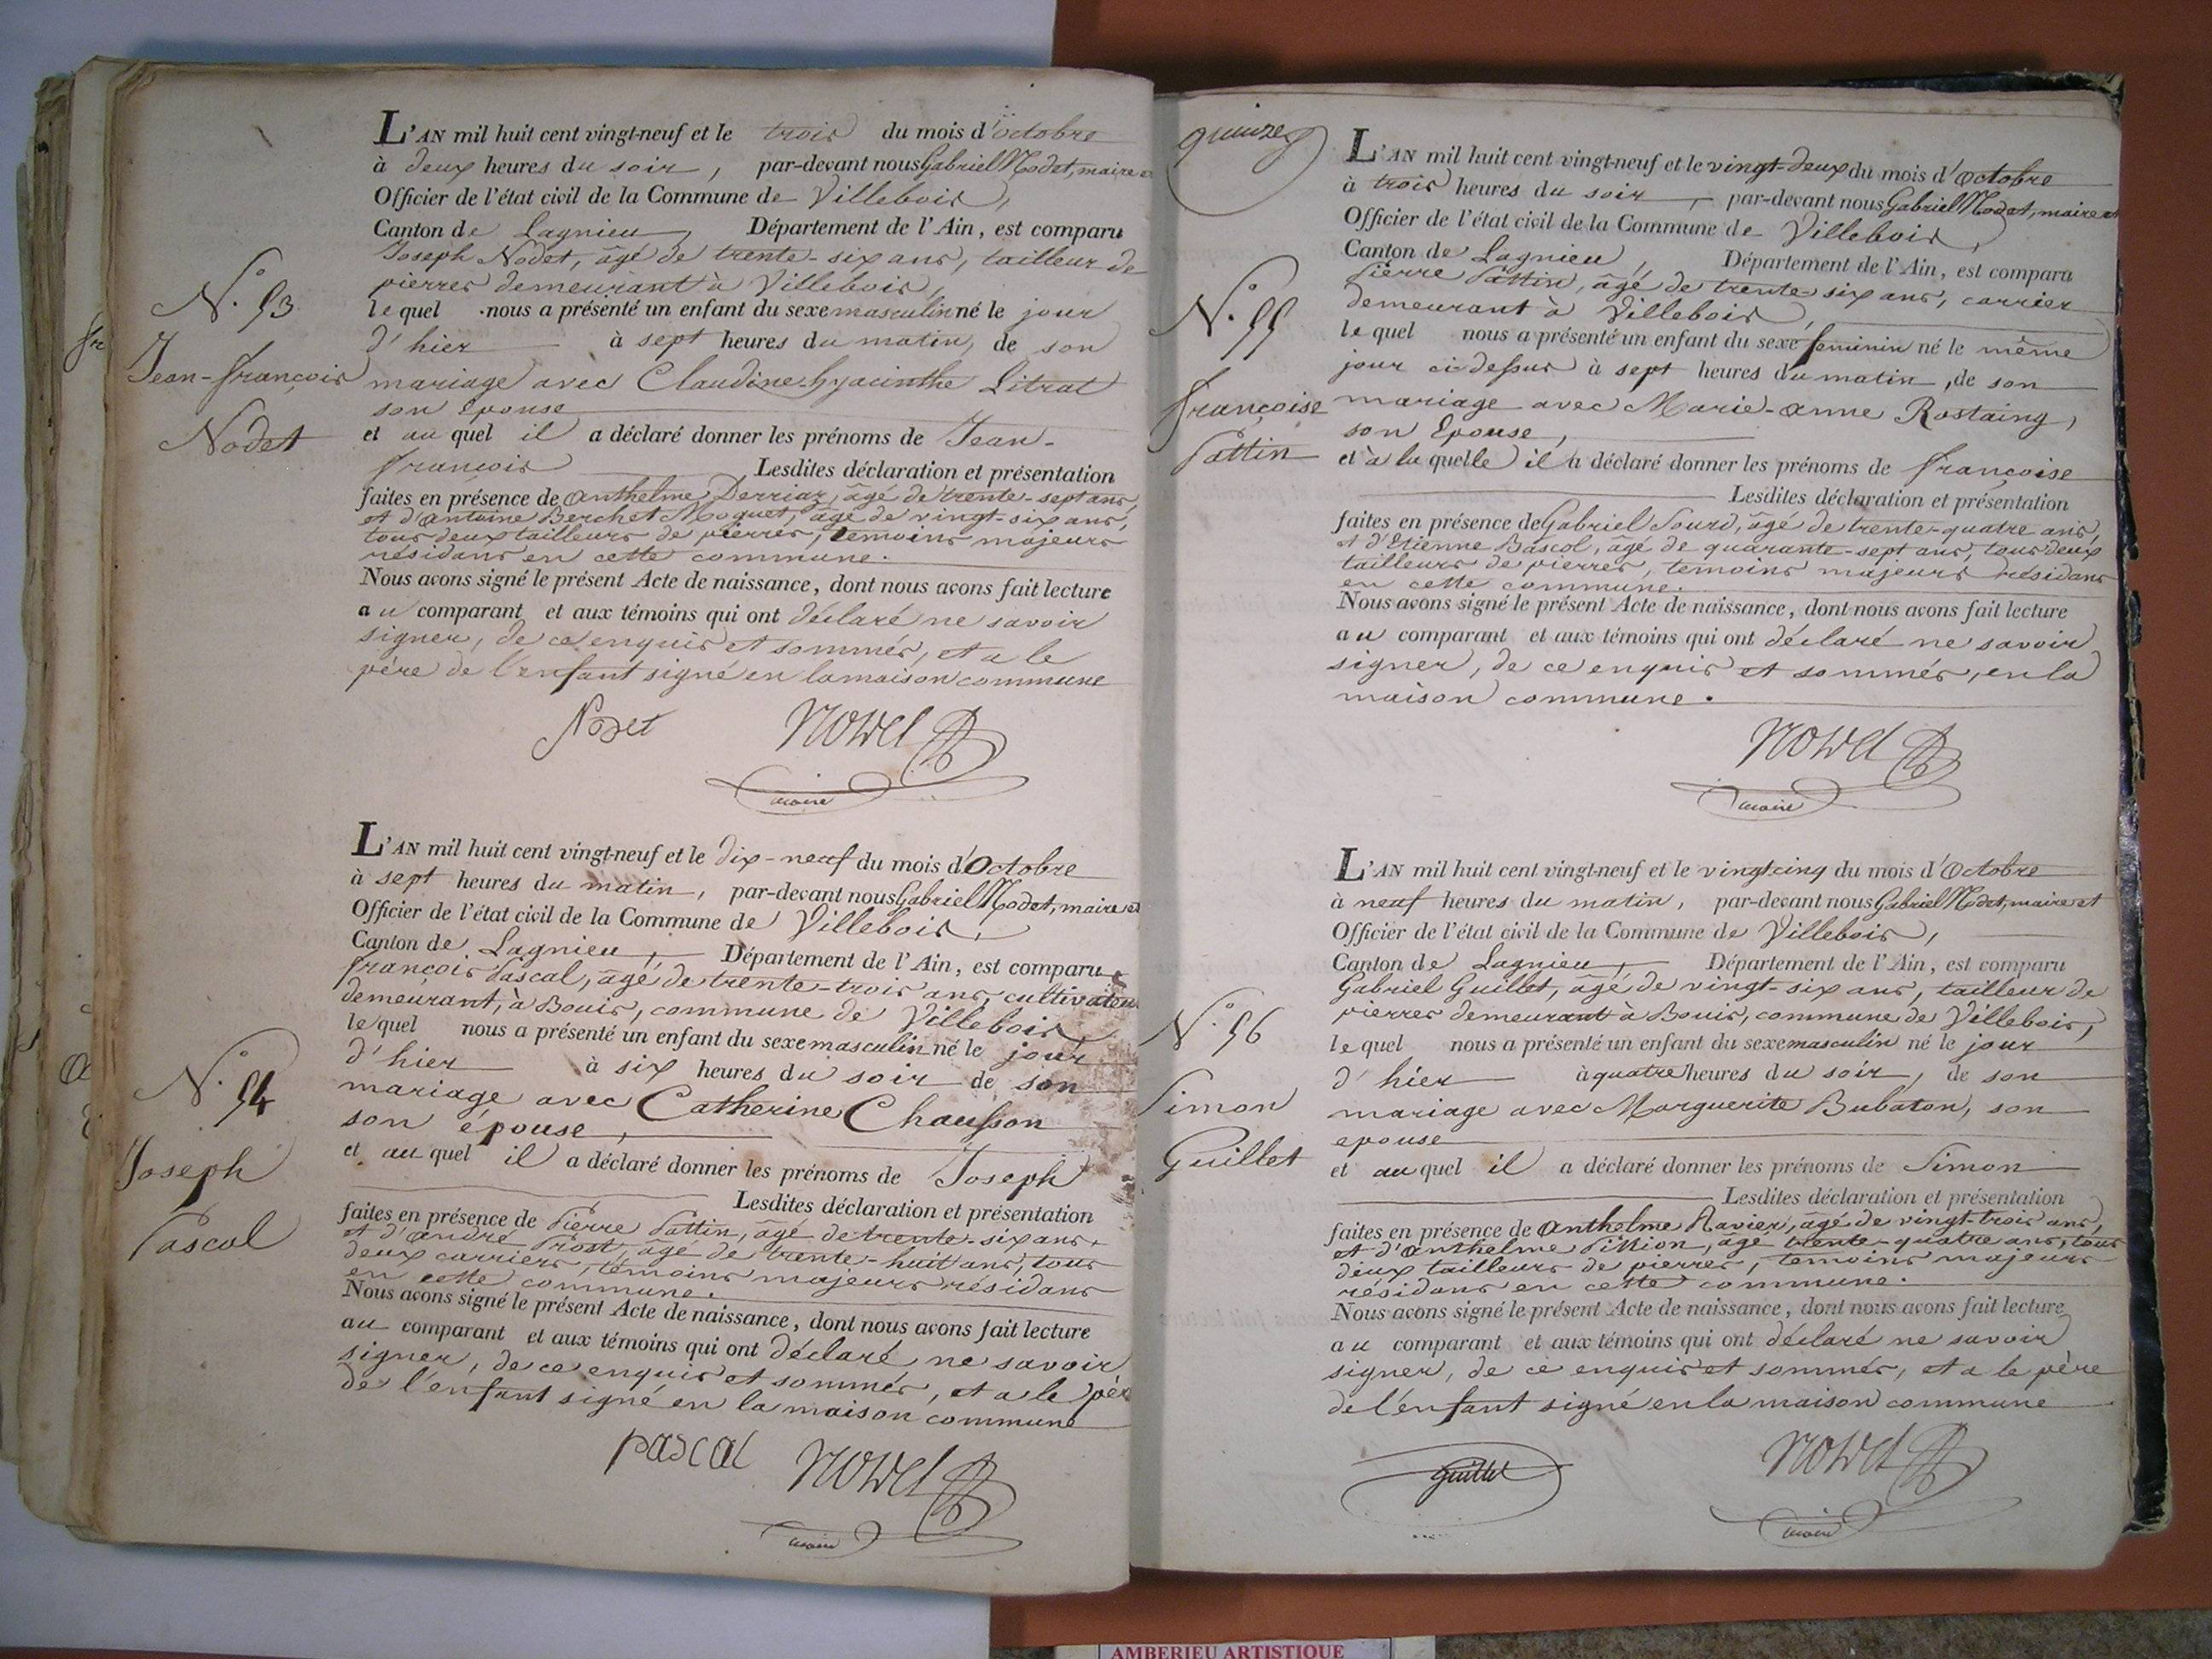 L'AN mil huit cent vingt-neuf et le trois du mois d'octobre
à deux heures du soir, par-devant nous Gabriel Nodet, maire et
Officier de l'état civil de la Commune de Villebois,
Canton de Lagnieu, Département de l'Ain, est comparu
Joseph Nodet, âgé de trente-six ans, tailleur de
pierres demeurant à Villebois,
lequel nous a présenté un enfant du sexe masculin né le jour
d'hier à sept heures du matin, de son
mariage avec Claudine hyacinthe Litrat
son épouse
et au quel il a déclaré donner les prénoms de Jean-
françois Lesdites déclaration et présentation
faites en présence de anthelme Derriaz, âgé de trente-sept ans,
et d'antoine Berchet Moguet, âgé de vingt-six ans,
tous deux tailleurs de pierres, témoins majeurs
résidans en cette commune.
Nous avons signé le présent Acte de naissance, dont nous avons fait lecture
au comparant et aux témoins qui ont déclaré ne savoir
signer, de ce enquis et sommés, et a le
père de l'enfant signé en la maison commune
Nodet Nodet
maire
N.° 53
Jean-françois
Nodet
L'AN mil huit cent vingt-neuf et le dix-neuf du mois d'Octobre
à sept heures du matin, par-devant nous Gabriel Nodet, maire et
Officier de l'état civil de la Commune de Villebois,
Canton de Lagnieu, Département de l'Ain, est comparu
françois Pascal, âgé de trente-trois ans, cultivateur
demeurant, à Bouis, commune de Villebois
lequel nous a présenté un enfant du sexe masculin né le jour
d'hier à six heures du soir de son
mariage avec Catherine Chausson
son épouse,
et au quel il a déclaré donner les prénoms de Joseph
Lesdites déclaration et présentation
faites en présence de Pierre Pattin, âgé de trente-six ans,
et d'andré Prost, âgé de trente-huit ans, tous
deux carriers, témoins majeurs résidans
en cette commune.
Nous avons signé le présent Acte de naissance, dont nous avons fait lecture
au comparant et aux témoins qui ont déclaré ne savoir
signer, de ce enquis et sommés, et a le pèr
de l'enfant signé en la maison commune
pascal Nodet
maire
N.° 54
Joseph
Pascal
quinze
L'AN mil huit cent vingt-neuf et le vingt-deux du mois d'octobre
à trois heures du soir, par-devant nous Gabriel Nodet, maire et
Officier de l'état civil de la Commune de Villebois,
Canton de Lagnieu, Département de l'Ain, est comparu
Pierre Pattin, âgé de trente-six ans, carrier
demeurant à Villebois,
lequel nous a présenté un enfant du sexe feminin né le même
jour ci dessus à sept heures du matin, de son
mariage avec Marie-anne Rostaing,
son Epouse,
et à la quelle il a déclaré donner les prénoms de françoise
Lesdites déclaration et présentation
faites en présence de Gabriel Sourd, âgé de trente-quatre ans,
et d'Etienne Bascol, âgé de quarante-sept ans, tous deux
tailleurs de pierres, témoins majeurs résidans
en cette commune.
Nous avons signé le présent Acte de naissance, dont nous avons fait lecture
au comparant et aux témoins qui ont déclaré ne savoir
signer, de ce enquis et sommés, en la
maison commune.
Nodet
maire
N.° 55
françoise
Pattin
L'AN mil huit cent vingt-neuf et le vingt-cinq du mois d'octobre
à neuf heures du matin, par-devant nous Gabriel Nodet, maire et
Officier de l'état civil de la Commune de Villebois,
Canton de Lagnieu, Département de l'Ain, est comparu
Gabriel Guillet, âgé de vingt-six ans, tailleur de
pierres demeurant à Bouis, commune de Villebois,
lequel nous a présenté un enfant du sexe masculin né le jour
d'hier à quatre heures du soir, de son
mariage avec Marguerite Bubaton, son
epouse
et au quel il a déclaré donner les prénoms de Simon
Lesdites déclaration et présentation
faites en présence de anthelme Ravier, âgé de vingt-trois ans,
et d'anthelme Pittion, âgé trente-quatre ans, tous
deux tailleurs de pierres, témoins majeurs
résidans en cette commune.
Nous avons signé le présent Acte de naissance, dont nous avons fait lecture
au comparant et aux témoins qui ont déclaré ne savoir
signer, de ce enquis et sommés, et a le père
de l'enfant signé en la maison commune
guillet Nodet
maire
N.° 56
Simon
Guillet
AMBERIEU ARTISTIQUE